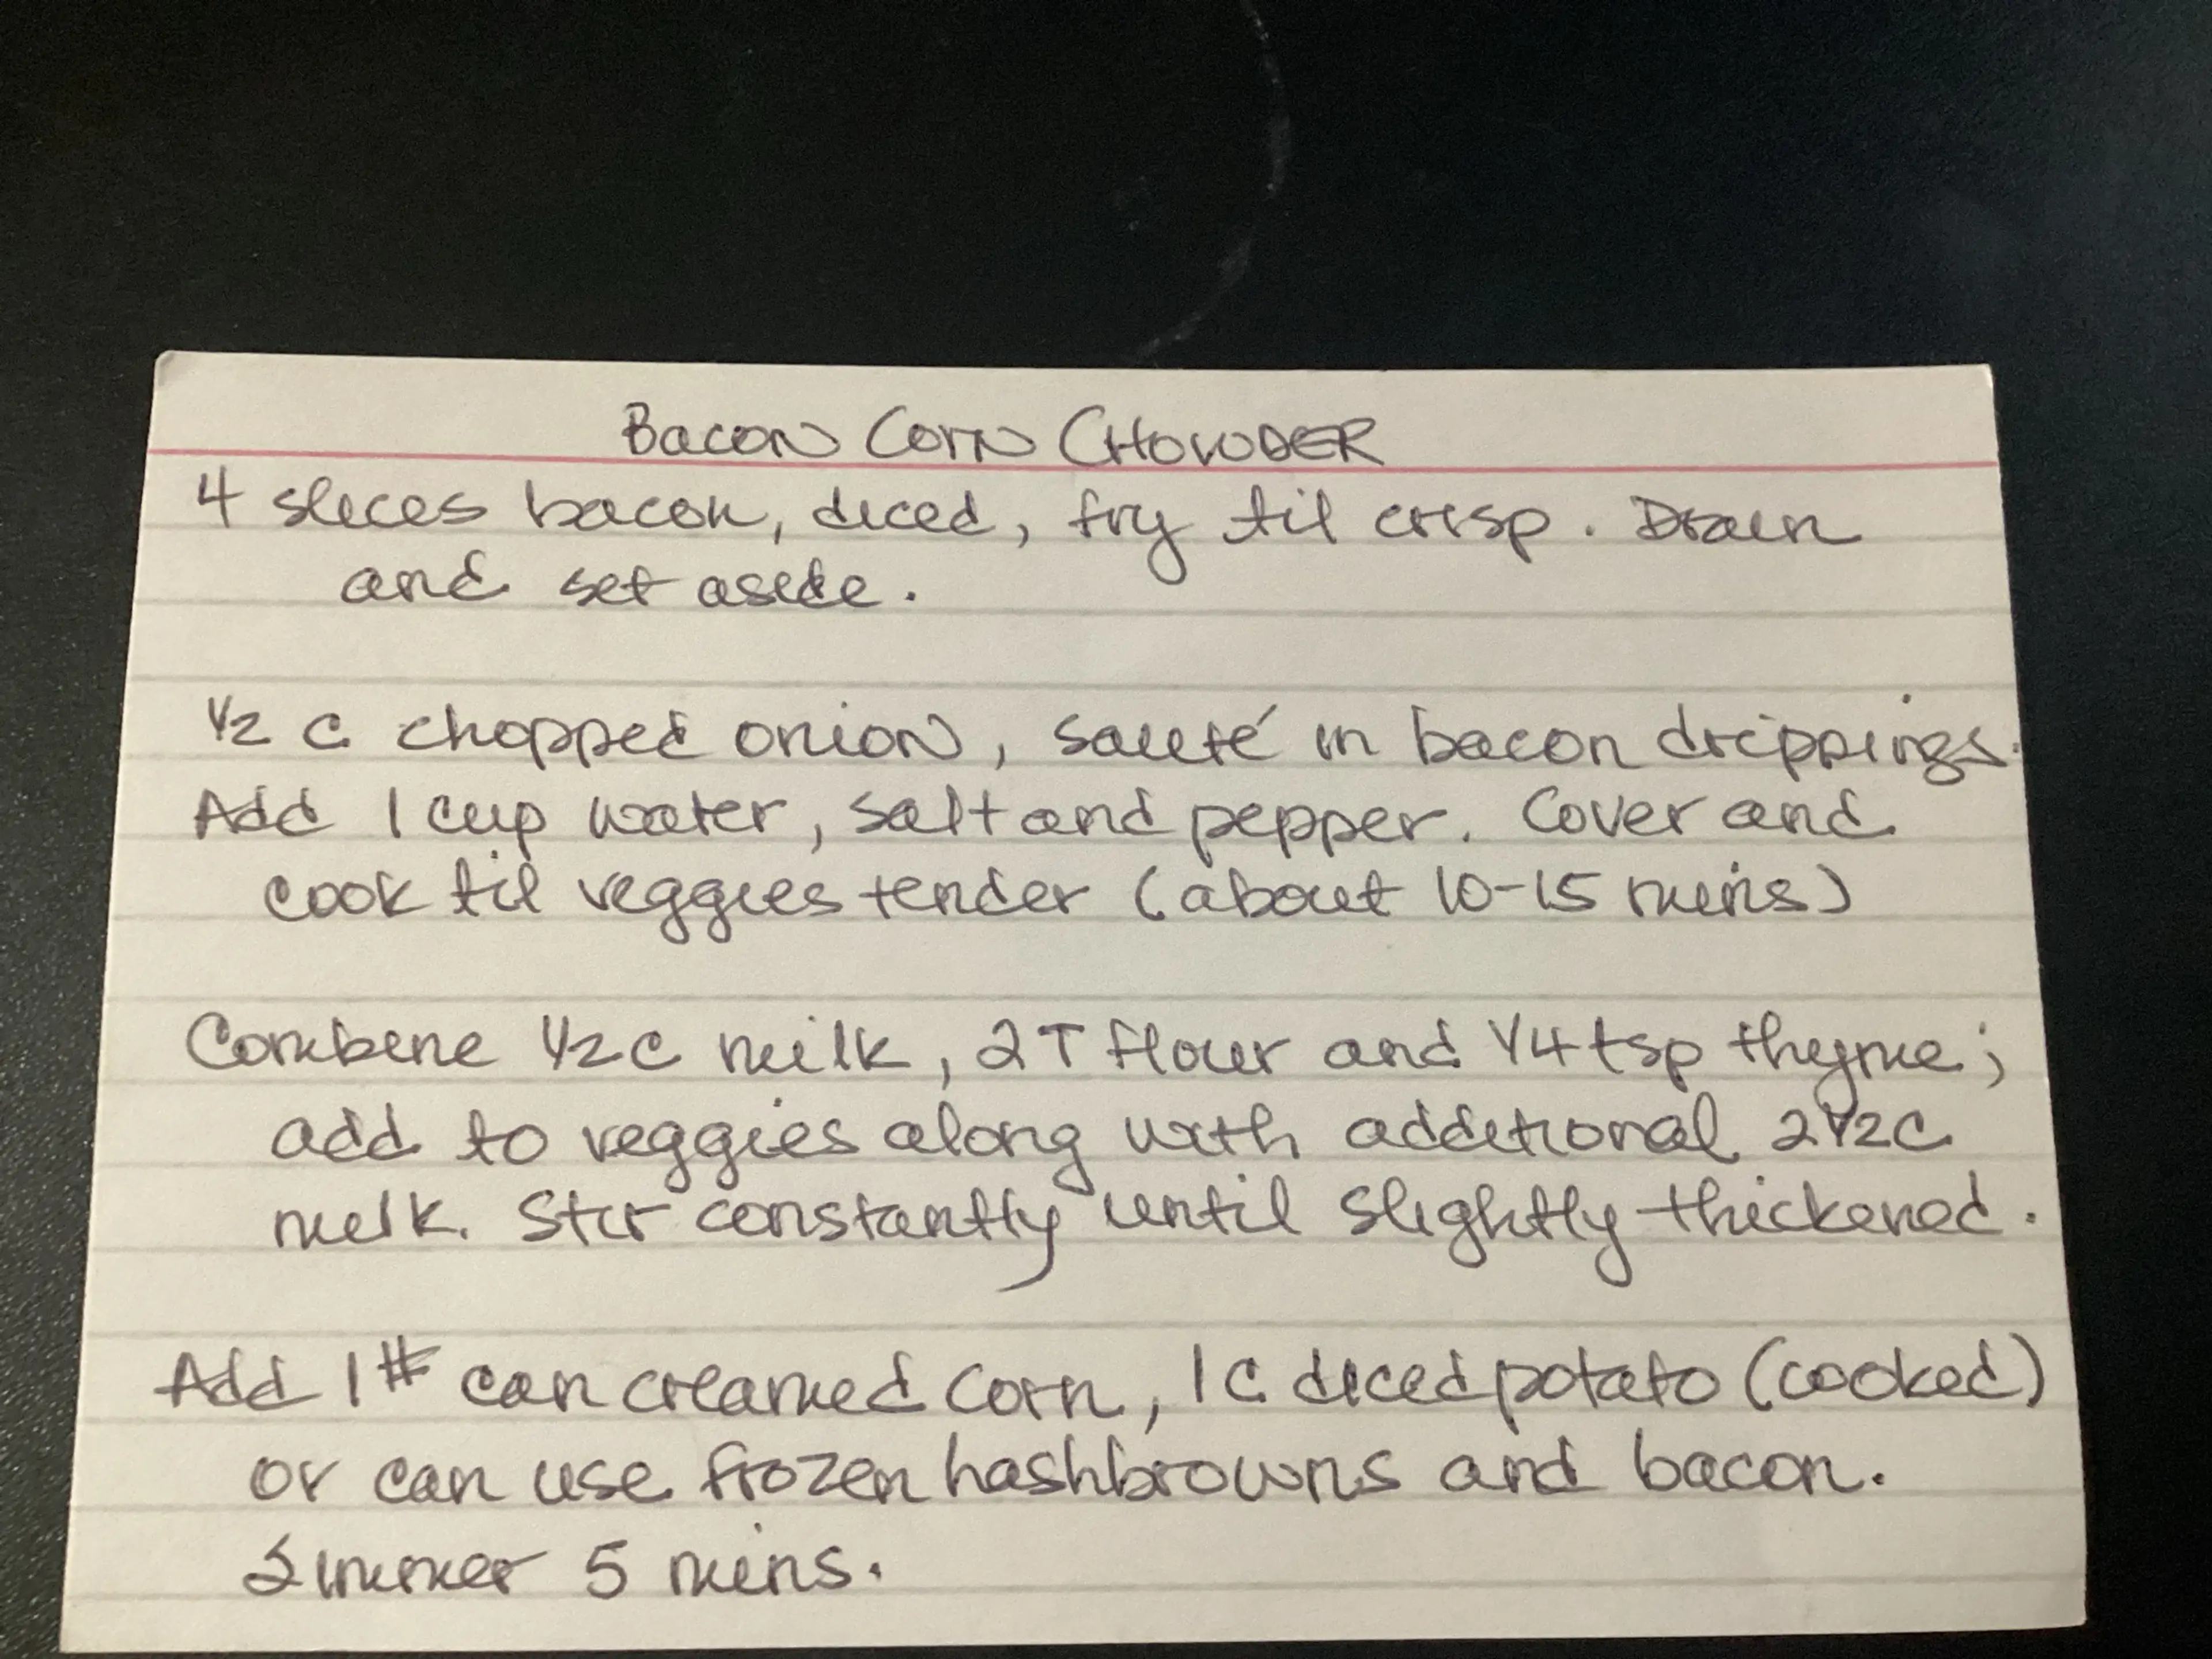 Bacon Corn CHOWDER
4 slices bacon, diced, fry til crisp. Drain
and set aside.
1/2 c chopped onion, sauté in bacon drippings.
Add 1 cup water, salt and pepper. Cover and
cook til veggies tender (about 10-15 mins)
Combine 1/2 c milk, 2 T flour and 1/4 tsp thyme;
add to veggies along with additional 2 1/2 c
milk. Stir constantly until slightly thickened.
Add 1# can creamed corn, 1 c diced potato (cooked)
or can use frozen hashbrowns and bacon.
Simmer 5 mins.